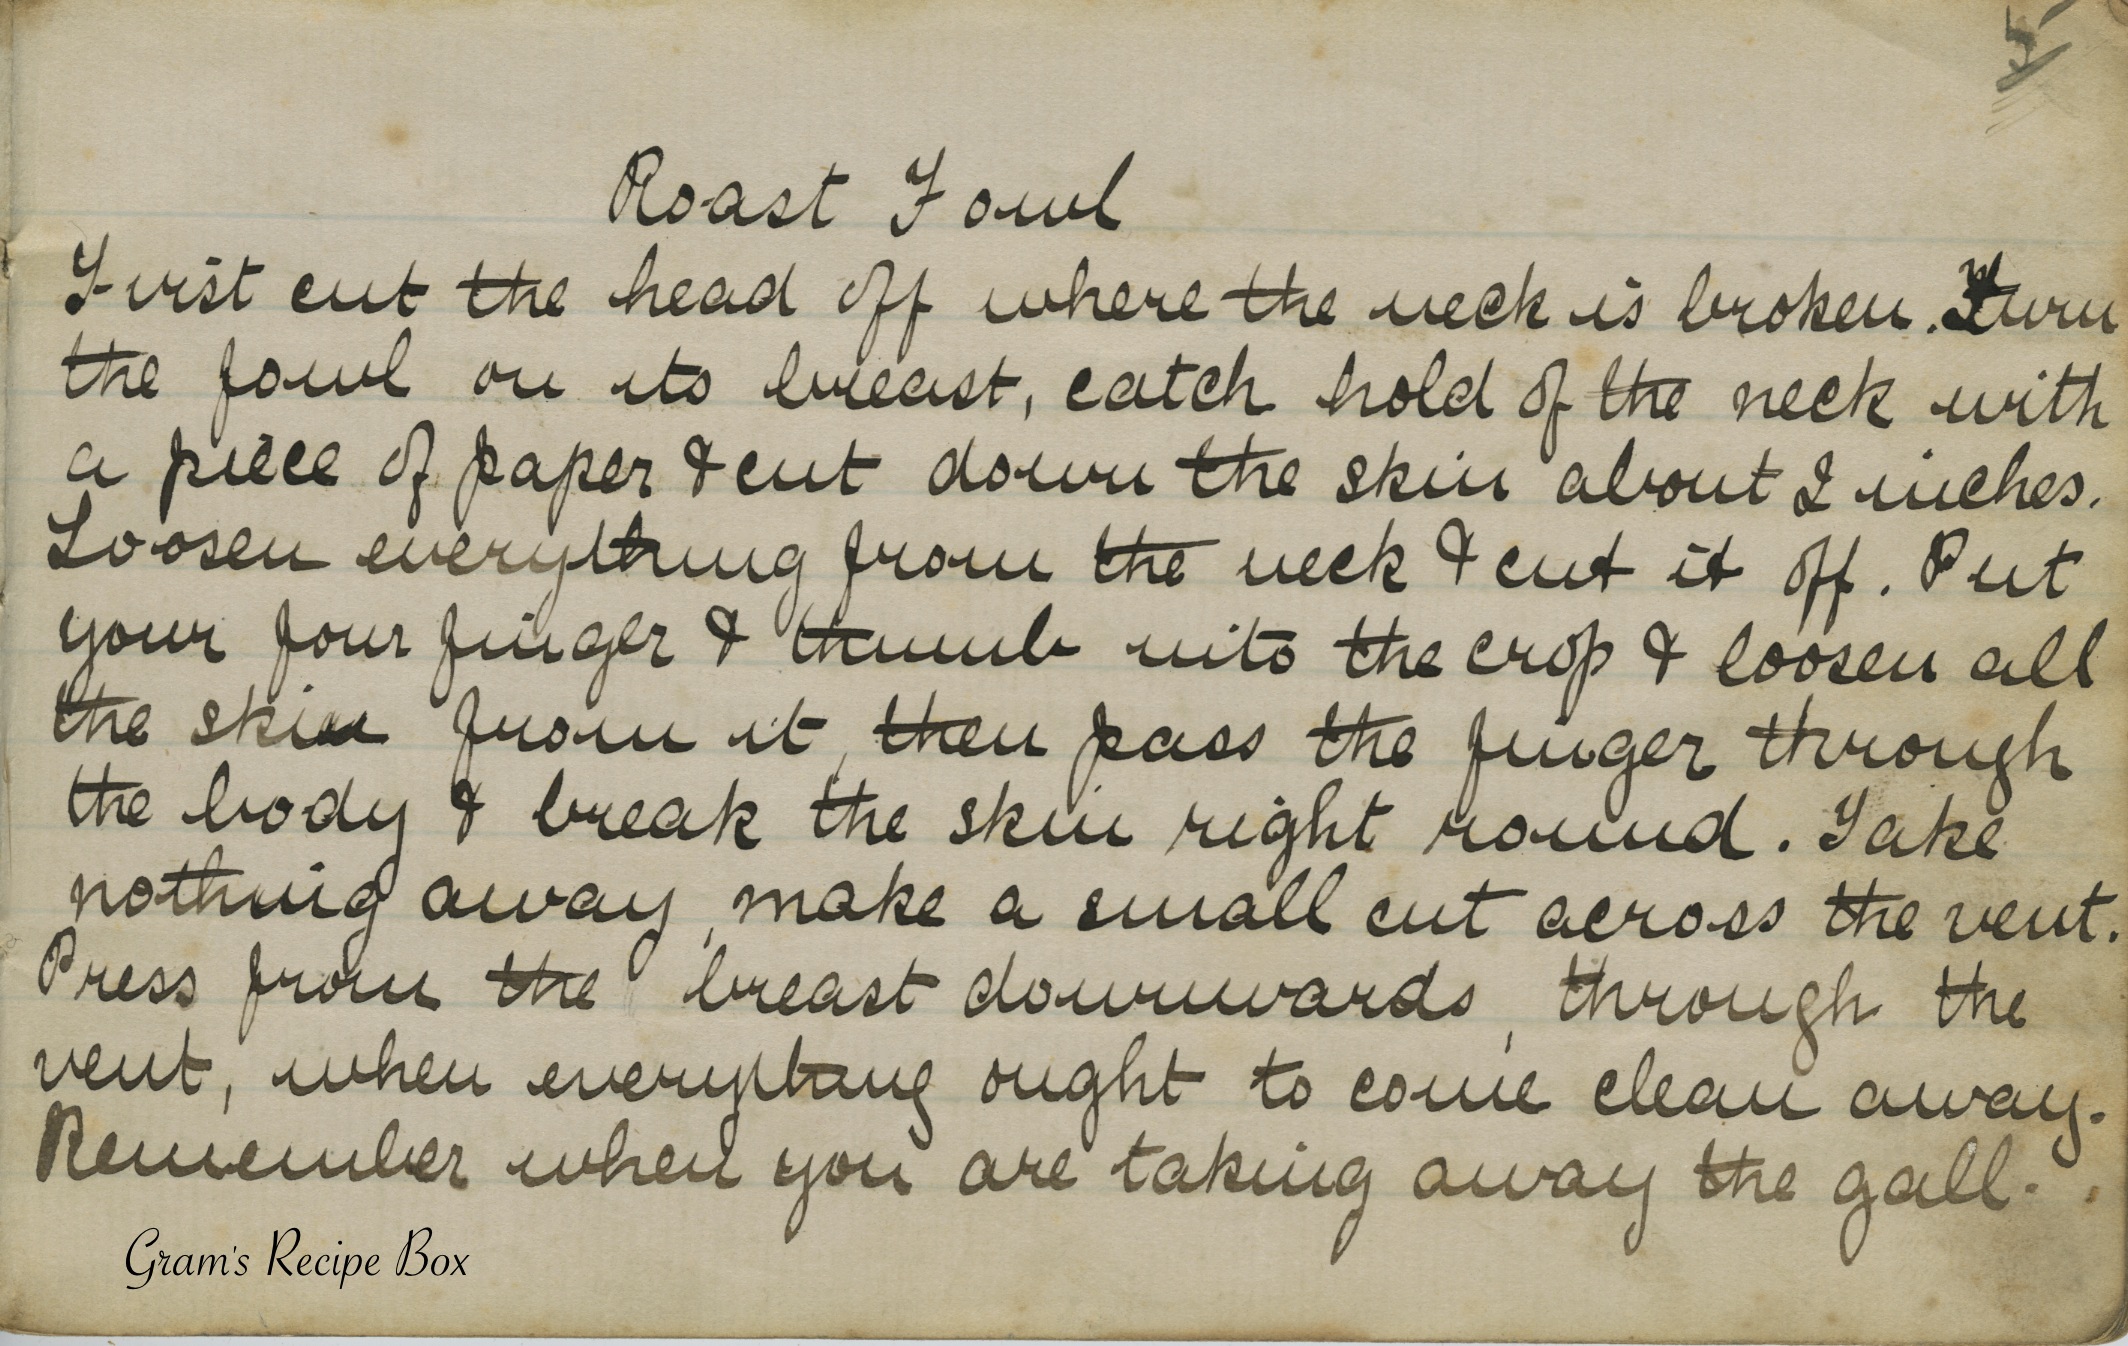 5
Roast Fowl
First cut the head off where the neck is broken. Turn
the fowl on its breast, catch hold of the neck with
a piece of paper & cut down the skin about 2 inches.
Loosen everything from the neck & cut it off. Put
your four finger & thumb into the crop & loosen all
the skin from it, then pass the finger through
the body & break the skin right round. Take
nothing away, make a small cut across the vent.
Press from the breast downwards, through the
vent, when everything ought to come clean away.
Remember when you are taking away the gall.
Gram's Recipe Box